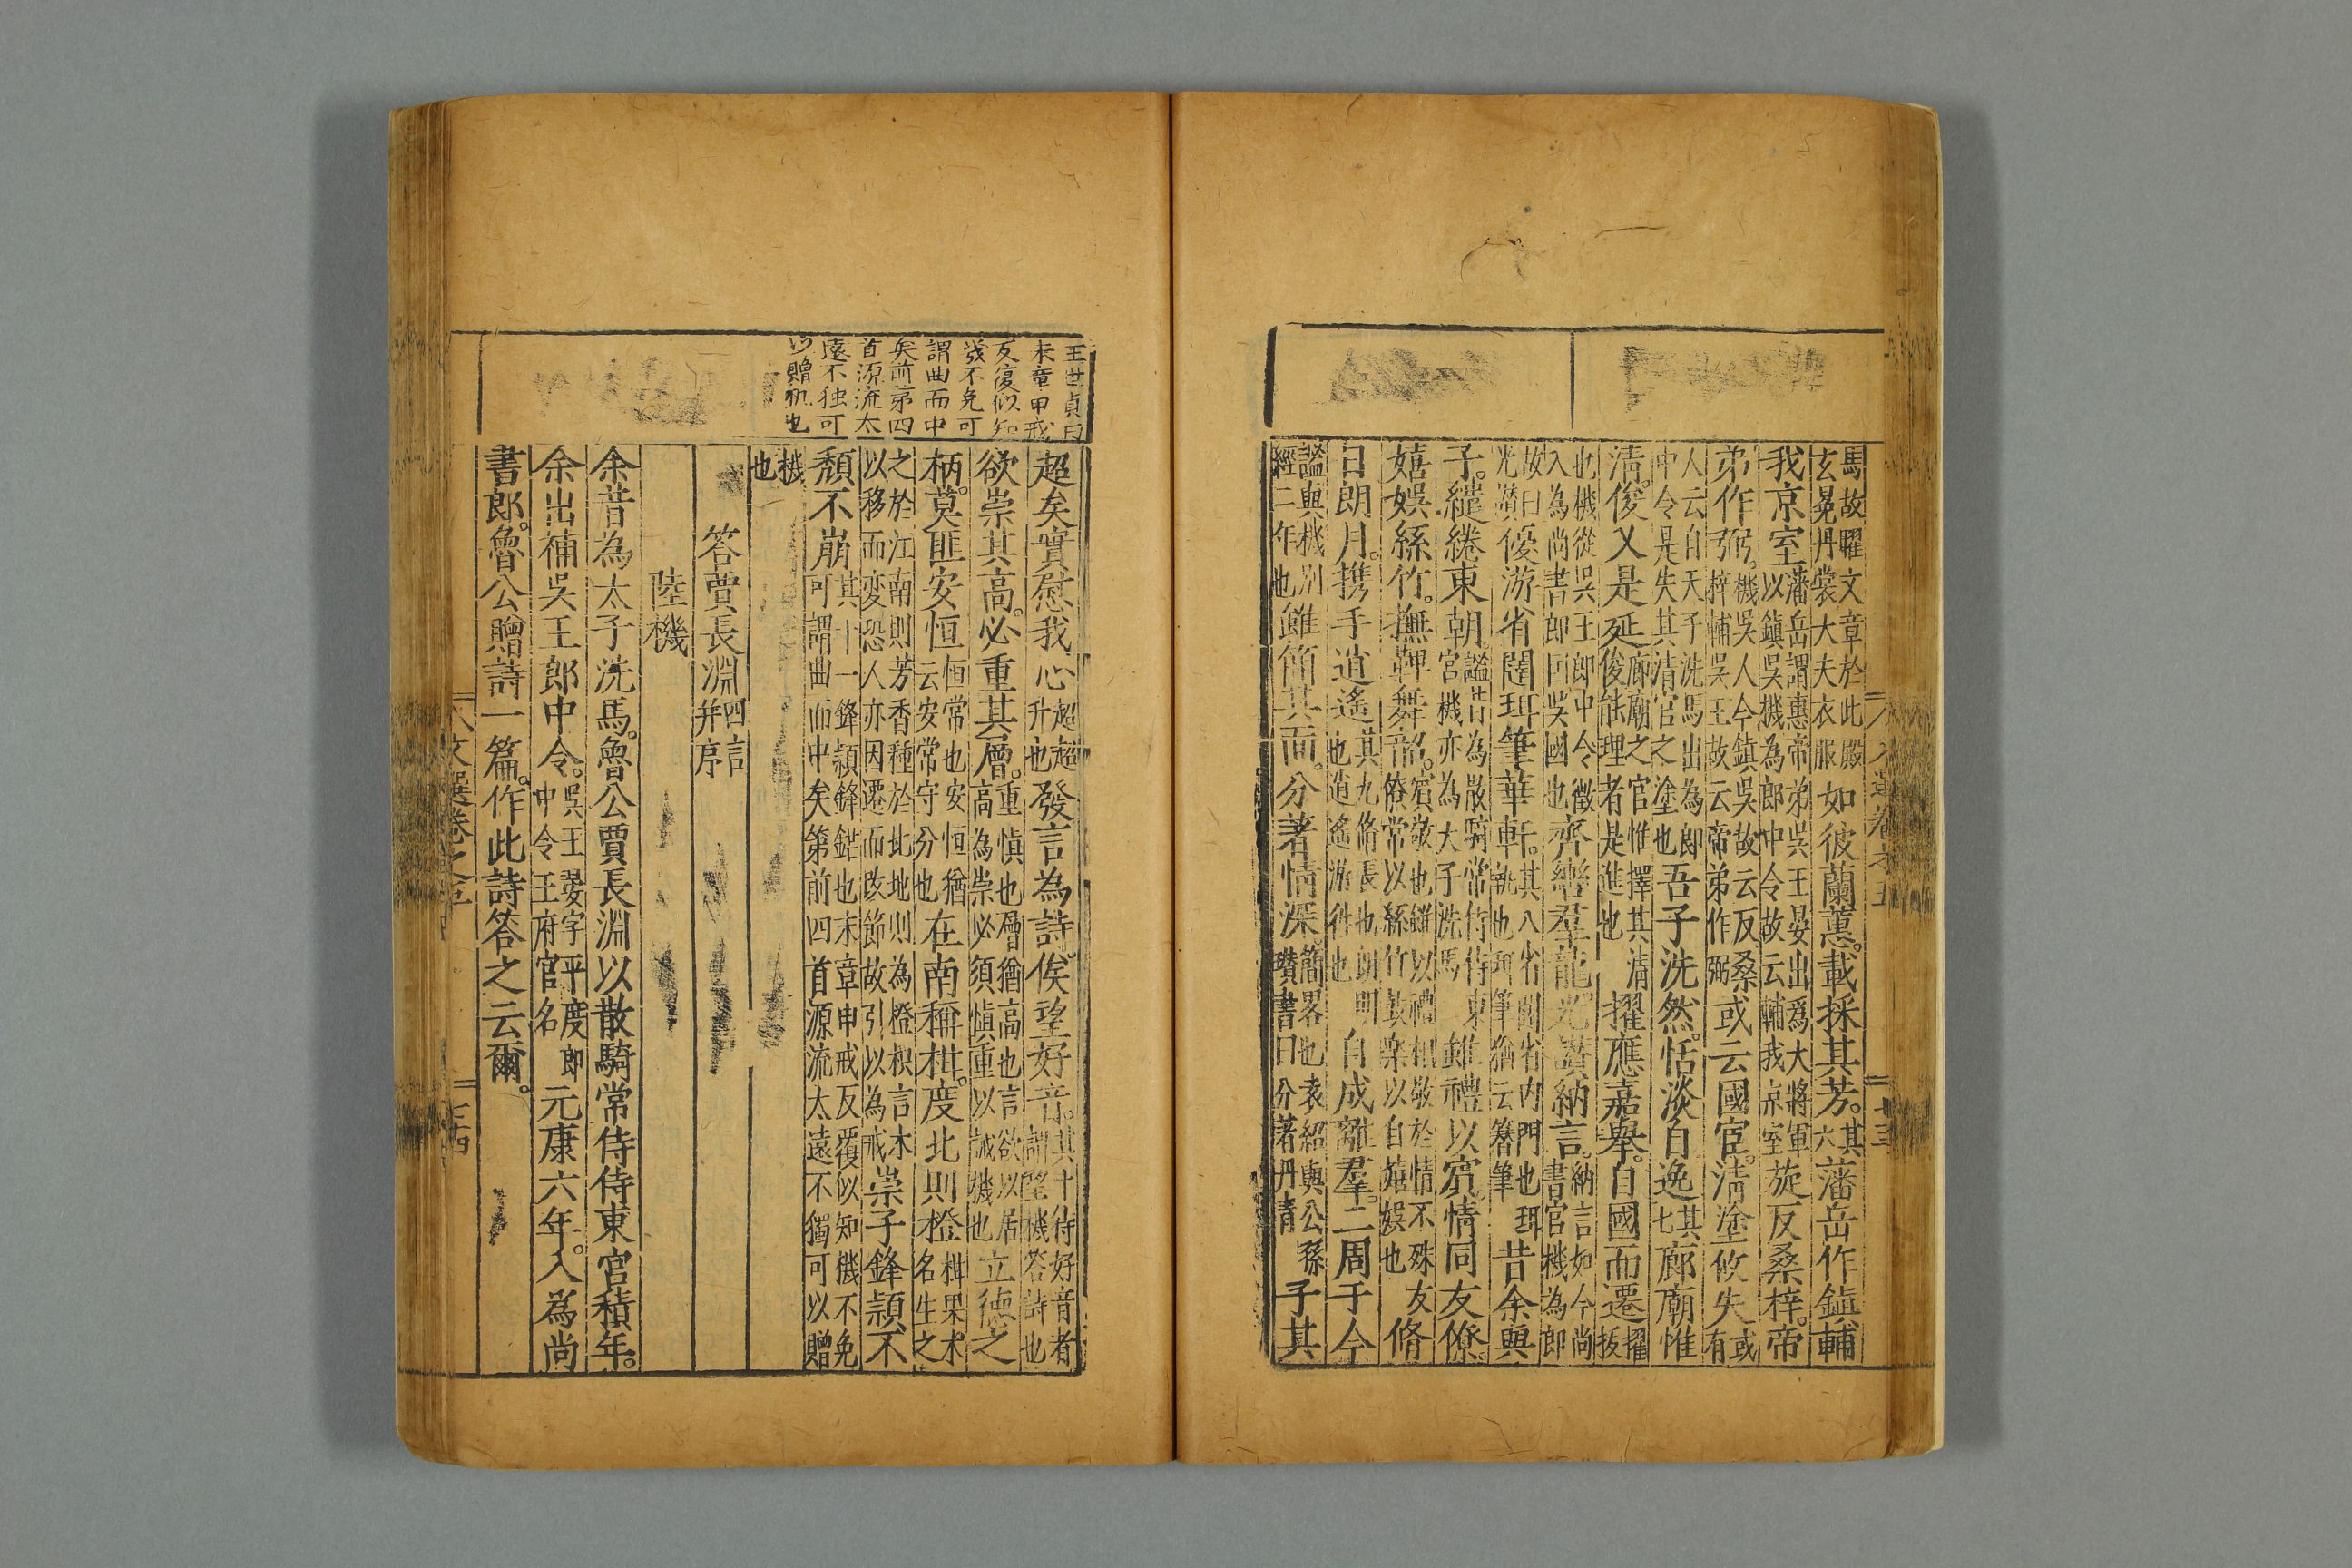 馬故曜文章於此殿玄冕丹裳大夫衣服如彼蘭蕙。載採其芳。其六藩岳作鎮輔
我京室藩岳謂惠帝弟吳王晏出爲大將軍以鎮吳機為郎中令故云輔我京室旋反桑梓。帝
弟作弼。機吳人今鎮吳故云反桑梓輔吳王故云帝弟作弼或云國宦。清塗攸失或有
人云自天子洗馬出為郎中令是失其清官之塗也吾子洗然。恬淡自逸其七廊廟惟
清。俊乂是延廊廟之官惟擇其清俊能理者是進也擢應嘉舉。自國而遷擢拔
此機從吳王郎中令徵入為尚書郎回吳國也齊轡羣龍光讚納言。納言如今尚書官機為郎
故曰光讚優游省闥珥筆華軒。其八省闥省內門也珥筆猶云簪筆昔余與
子。繾綣東朝謐昔為散騎常侍侍東宮機亦為太子洗馬雖禮以賓。情同友僚。
嬉娛絲竹。撫鞞舞韶。賓敬也雖以禮相敬於情不殊友僚常以絲竹鼓樂以自嬉娛也脩
日朗月。携手逍遙其九脩長也朗明也逍遙游徃也自成離羣。二周于今
謐與機別經二年也雖簡其面。分著情深簡畧也袁紹與公孫瓚書曰分著丹青子其
文選卷之五
七十三
王世貞曰
末章甲戒
反復似知
幾不免可
謂曲而中
矣前第四
首源流太
遠不独可
以贈机也
超矣實慰我心超超升也發言為詩。俟望好音。其十待好音者謂望機答詩也
欲崇其高。必重其層。重慎也層猶高也言欲以居高為崇必須慎重以誡機也立德之
柄。莫匪安恒恒常也安恒猶云安常守分也在南稱柑。度北則橙柑果木名生之
之於江南則芳香種於北地則為橙枳言木以移而変恐人亦因遷而改節故引以為戒崇子鋒頴不
頹不崩其十一鋒頴鋒鋩也末章申戒反覆似知機不免可謂曲而中矣第前四首源流太遠不獨可以贈
機也
答賈長淵四言并序
陸機
余昔為太子洗馬。魯公賈長淵以散騎常侍侍東宮積年。
余出補吳王郎中令。吳王晏字平度郎中令王府官名元康六年。入為尚
書郎。魯公贈詩一篇。作此詩答之云爾。
文選卷之五
七十四